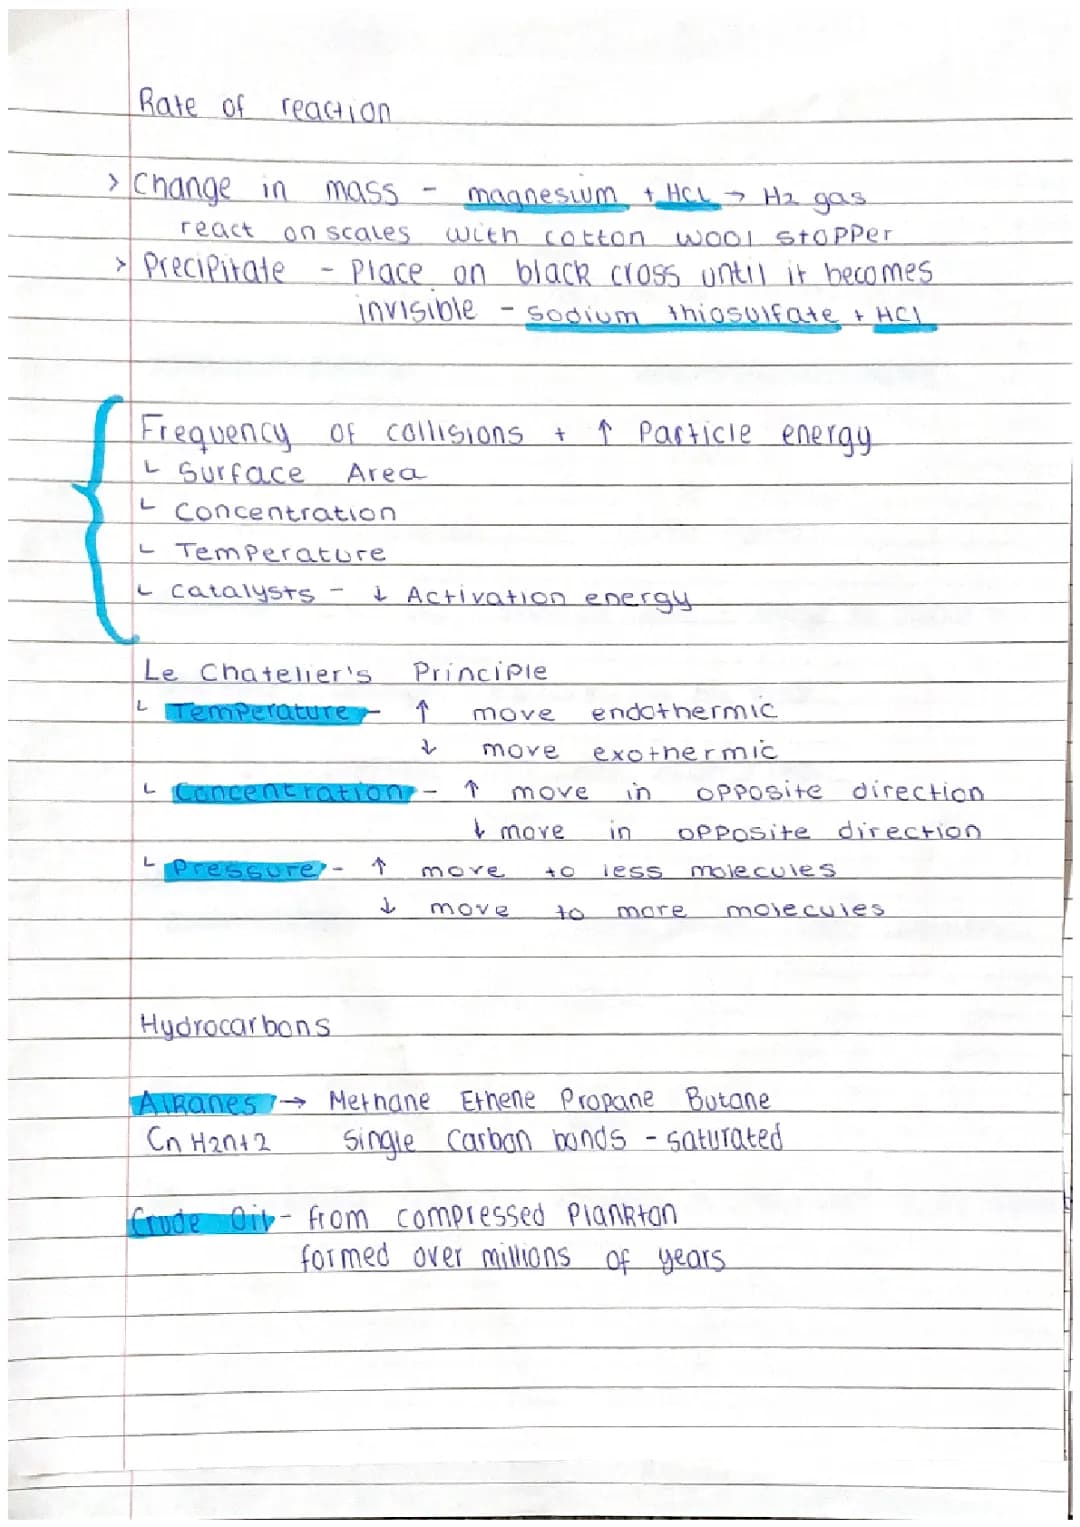 Rate of reaction
> Change in mass - magnesium + HCl → H2 gas
react on scales with cotton wool stopper
> Precipitate - Place on black cross until it becomes
invisible - sodium thiosulfate + HCl
Frequency of collisions + ↑ Particle energy
└ Surface Area
└ Concentration
└ Temperature
└ Catalysts - ↓ Activation energy
Le Chatelier's Principle
└ Temperature - ↑ move endothermic
↓ move exothermic
└ Concentration - ↑ move in opposite direction
↓ move in opposite direction
└ Pressure - ↑ move to less molecules
↓ move to more molecules
Hydrocarbons
Alkanes → Methane Ethene Propane Butane
Cn H2n+2 single carbon bonds - saturated
Crude Oil - from compressed Plankton
formed over millions of years